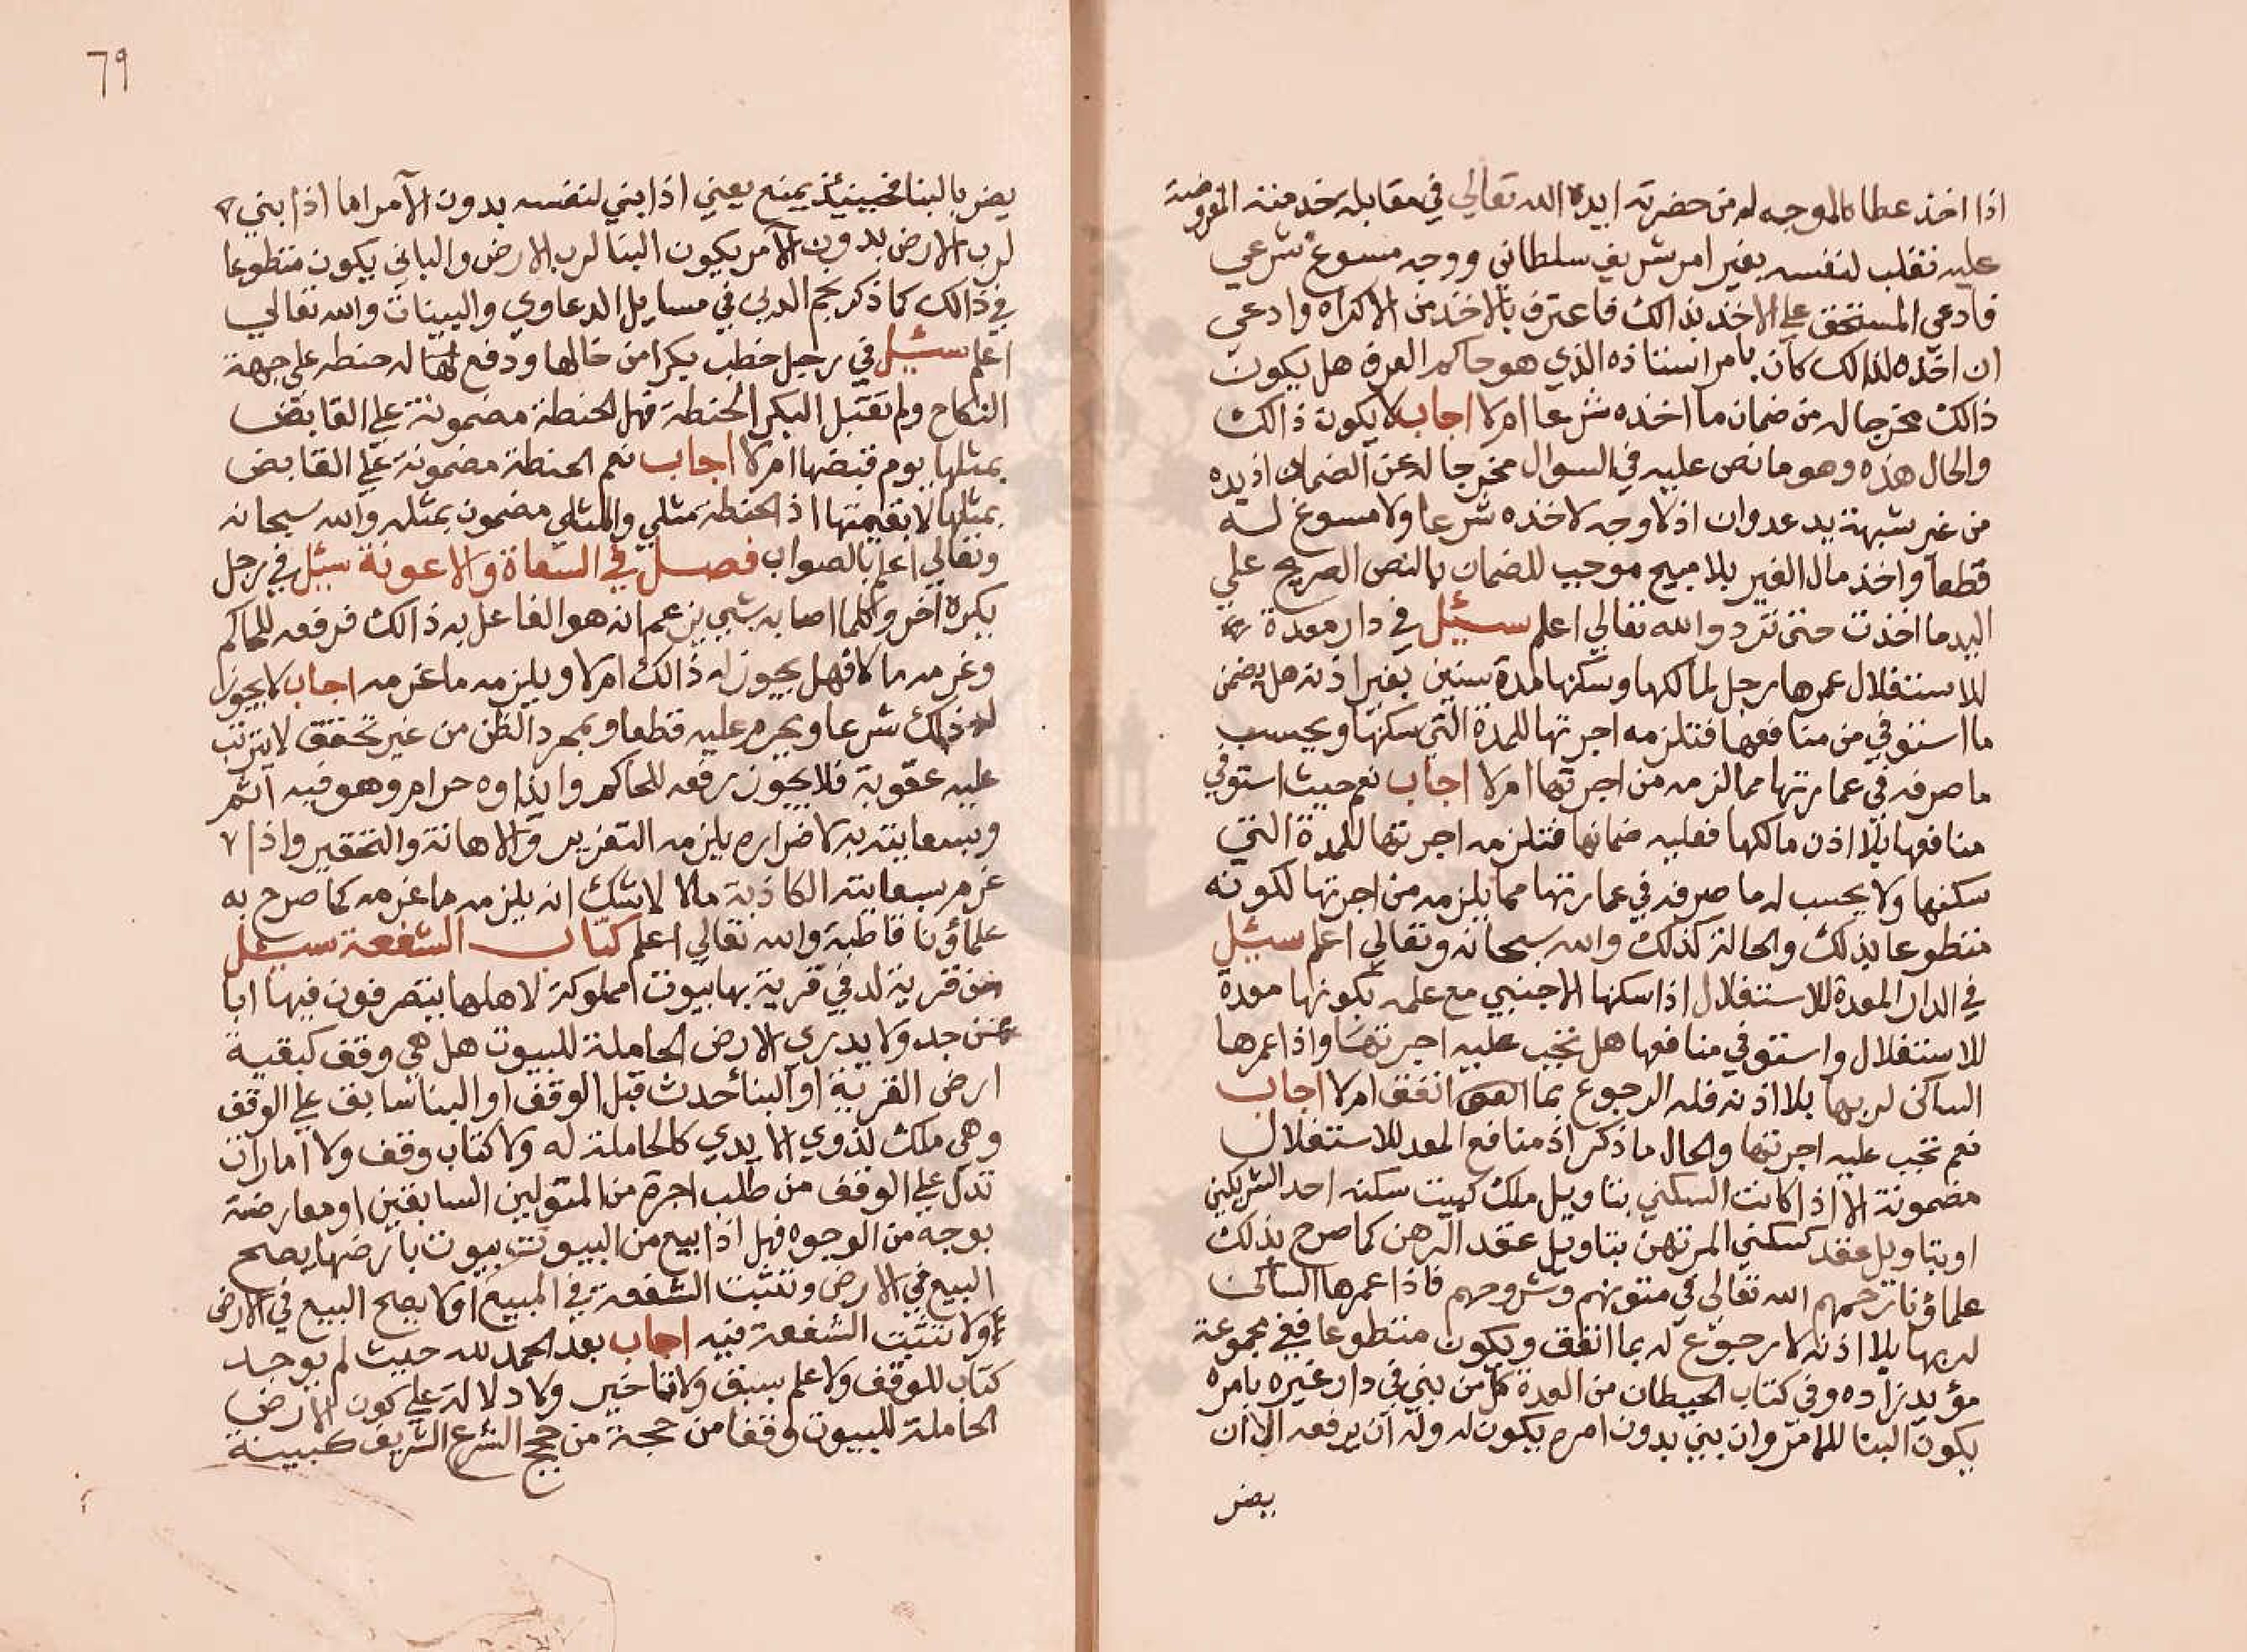 اذا اخذ عطاه الموجه له من حضرته ايده الله تعالي في مقابله خدمته المفروضة
عليه تقلب لنفسه بغير امر شريف سلطاني ووجه مسوغ شرعي
فادعي المستحق علي الاخذ بذالك فاعترف بالاخذ من الاكراه وادعي
ان اخذه لذلك كان بامر استاذه الذي هو حاكم العرف هل يكون
ذالك مخرجا له من ضمان ما اخذه شرعا ام لا اجاب لا يكون ذالك
والحال هذه وهو ما نص عليه في السوال مخرجا له عن الضمان اذ يده
من غير شبهة يد عدوان اذ لا وجه لاخذه شرعا ولا مسوغ له
قطعا واخذ مال الغير بلا مبيح موجب للضمان بالنص الصريح علي
اليد ما اخذت حتى ترد والله تعالي اعلم سئيل في دار معدة
للاستغلال عمرها رجل لمالكها وسكنها مدة سنين بغير اذنه هل يضمن
ما استوفي من منافعها فتلزمه اجرتها للمدة التي سكنها ويحسب
ما صرفه في عمارتها مما لزمه من اجرتها ام لا اجاب نعم حيث استوفي
منافعها بلا اذن مالكها فعليه ضمانها فتلزمه اجرتها للمدة التي
سكنها ولا يحسب له ما صرفه في عمارتها مما يلزمه من اجرتها لكونه
متطوعا بذلك والحالة كذلك والله سبحانه وتعالي اعلم سئيل
في الدار المعدة للاستغلال اذا سكنها الاجنبي مع علمه بكونها معدة
للاستغلال واستوفي منافعها هل تجب عليه اجرتها واذا عمرها
الساكن لربها بلا اذنه فله الرجوع بما انفق ام لا اجاب
نعم تجب عليه اجرتها والحال ما ذكر اذ منافع المعد للاستغلال
مضمونة الا اذا كانت السكني بتاويل ملك كبيت سكنه احد الشريكين
او بتاويل عقد كسكني المرتهن بتاويل عقد الرهن كما صرح بذلك
علماؤنا رحمهم الله تعالي في متونهم وشروحهم فاذا عمرها الساكن
لربها بلا اذنه لا رجوع له بما انفق ويكون متطوعا ففي مجموعة
مؤيد زاده وفي كتاب الحيطان من العدة كل من بني في دار غيره بامره
يكون البنا للامر وان بني بدون امره يكون له وله ان يرفعه الا ان
يضر
٦٩
يضر بالبنا فحينئذ يمنع يعني اذا بني لنفسه بدون الآمر اما اذا بني
لرب الارض بدون الآمر يكون البنا لرب الارض والباني يكون متطوعا
في ذالك كما ذكر نجم الدين في مسايل الدعاوي والبينات والله تعالي
اعلم سئيل في رجل خطب بكرا من خالها ودفع لها له حنطه علي جهة
النكاح ولم تقبل البكر الحنطة فهل الحنطة مضمونة علي القابض
بمثلها يوم قبضها ام لا اجاب نعم الحنطة مضمونة علي القابض
بمثلها لا بقيمتها اذ الحنطة مثلي والمثلي مضمون بمثله والله سبحانه
وتعالي اعلم بالصواب فصل في السعاة والاعونة سئيل في رجل
يكره آخر وكلما اصابه شيئ يزعم انه هو الفاعل به ذالك فرفعه للحاكم
وغرمه مالا فهل يجوز له ذالك ام لا ويلزمه ما غرمه اجاب لا يجوز
له ذلك شرعا ويحرم عليه قطعا وبمجرد الظن من غير تحقق لا يترتب
عليه عقوبة فلا يجوز رفعه للحاكم وايذاوه حرام وهو فيه آثم
وبسعايته به لاضراره يلزمه التعزير والاهانة والتحقير واذا
غرم بسعايته الكاذبة مالا لا شك انه يلزمه ما غرمه كما صرح به
علماؤنا قاطبة والله تعالي اعلم كتاب الشفعة سئيل
من قرية لد في قرية بها بيوت مملوكة لاهلها يتصرفون فيها ابا
عن جد ولا يدري الارض الحاملة للبيوت هل هي وقف كبقية
ارض القرية او البنا أحدث قبل الوقف او البنا سابق علي الوقف
وهي ملك لذوي الايدي كالحاملة له ولا كتاب وقف ولا امارات
تدل علي الوقف من طلب اجرة من المتولين السابقين او معارضة
بوجه من الوجوه فهل اذا بيع من البيوت بيوت بارضها يصح
البيع في الارض وتثبت الشفعة في المبيع او لا يصح البيع في الارض
اولا تثبت الشفعة فيه اجاب بعد الحمد لله حيث لم يوجد
كتاب للوقف ولا علم بسبق ولا تاخير ولا دلالة علي كون الارض
الحاملة للبيوت وقفا من حجة من حجج الشرع الشريف كبينة